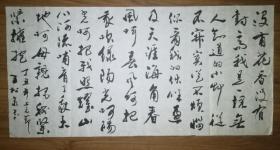 没有花香没有
树高我是一棵无
人知道的小草从
不寂寞从不烦恼
你看我的伙伴遍
及天涯海角春
風呵春風呵把
我吹绿阳光呵阳
光呵把我照耀山
川河流哺育了我大
地呵母亲把我紧
紧拥抱